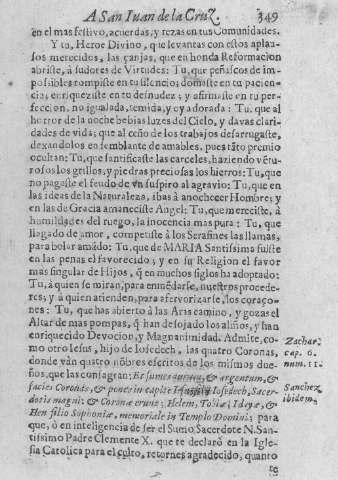 A San Iuan de la Cruz. 349
en el mas festivo, acuerdas, y rezas en tus Comunidades.
Y tu, Heroe Divino, que levantas con estos aplau-
sos merecidos, las çanjas, que en honda Reformacion
abriste, à sudores de Virtudes: Tu, que peñascos de im-
possibles rompiste en tu silencio; domaste en tu pacien-
cia; enriqueziste en tu desnudez; y afirmaste en tu per-
feccion, no igualada, temida, y oy adorada: Tu, que al
horror de la noche bebias luzes del Cielo, y davas clari-
dades de vida; que al ceño de los trabajos desarrugaste,
dexandolos en semblante de amables, pues tãto premio
ocultan: Tu, que santificaste las carceles, haziendo vẽtu-
rosos los grillos, y piedras preciosas los hierros: Tu, que
no pagaste el feudo de vn suspiro al agravio; Tu, que en
las ideas de la Naturaleza, ibas à anochecer Hombre; y
en las de Gracia amaneciste Angel: Tu, que mereciste, à
humildades del ruego, la inocencia mas pura: Tu, que
llagado de amor, compensté à los Serafines las llamas,
para bolar amãdo: Tu, que de MARIA Santissima fuiste
en las penas el favorecido; y en su Religion el favor
mas singular de Hijos, q̃ en muchos siglos ha adoptado:
Tu, à quien se miran, para enmẽdarse, nuestros procede-
res; y à quien atienden, para afervorizarse, los coraço-
nes: Tu, que has abierto à las Aras camino, y gozas el
Altar de mas pompas, q̃ han desojado los años, y han
enriquecido Devocion, y Magnanimidad. Admite, co-
mo otro Iesus, hijo de Iosedech, las quatro Coronas,
donde van quatro nõbres escritos de los mismos due-
ños, que las consagran: Et sumes aurum, & argentum, &
facies Coronas, & pones in capite Iesu filij Iosedech, Sacer-
dotis magni: & Coronæ erunt; Helem, Tobiæ, Idayæ, &
Hen filio Sophoniæ, memoriale in Templo Domini; para
que, ò en inteligencia de ser el Sumo Sacerdote N. San-
tissimo Padre Clemente X. que te declarò en la Igle-
sia Catolica para el culto, retornes agradecido, quanto
te
Zachar.
cap. 6.
num. 11.
Sanchez
ibidem.